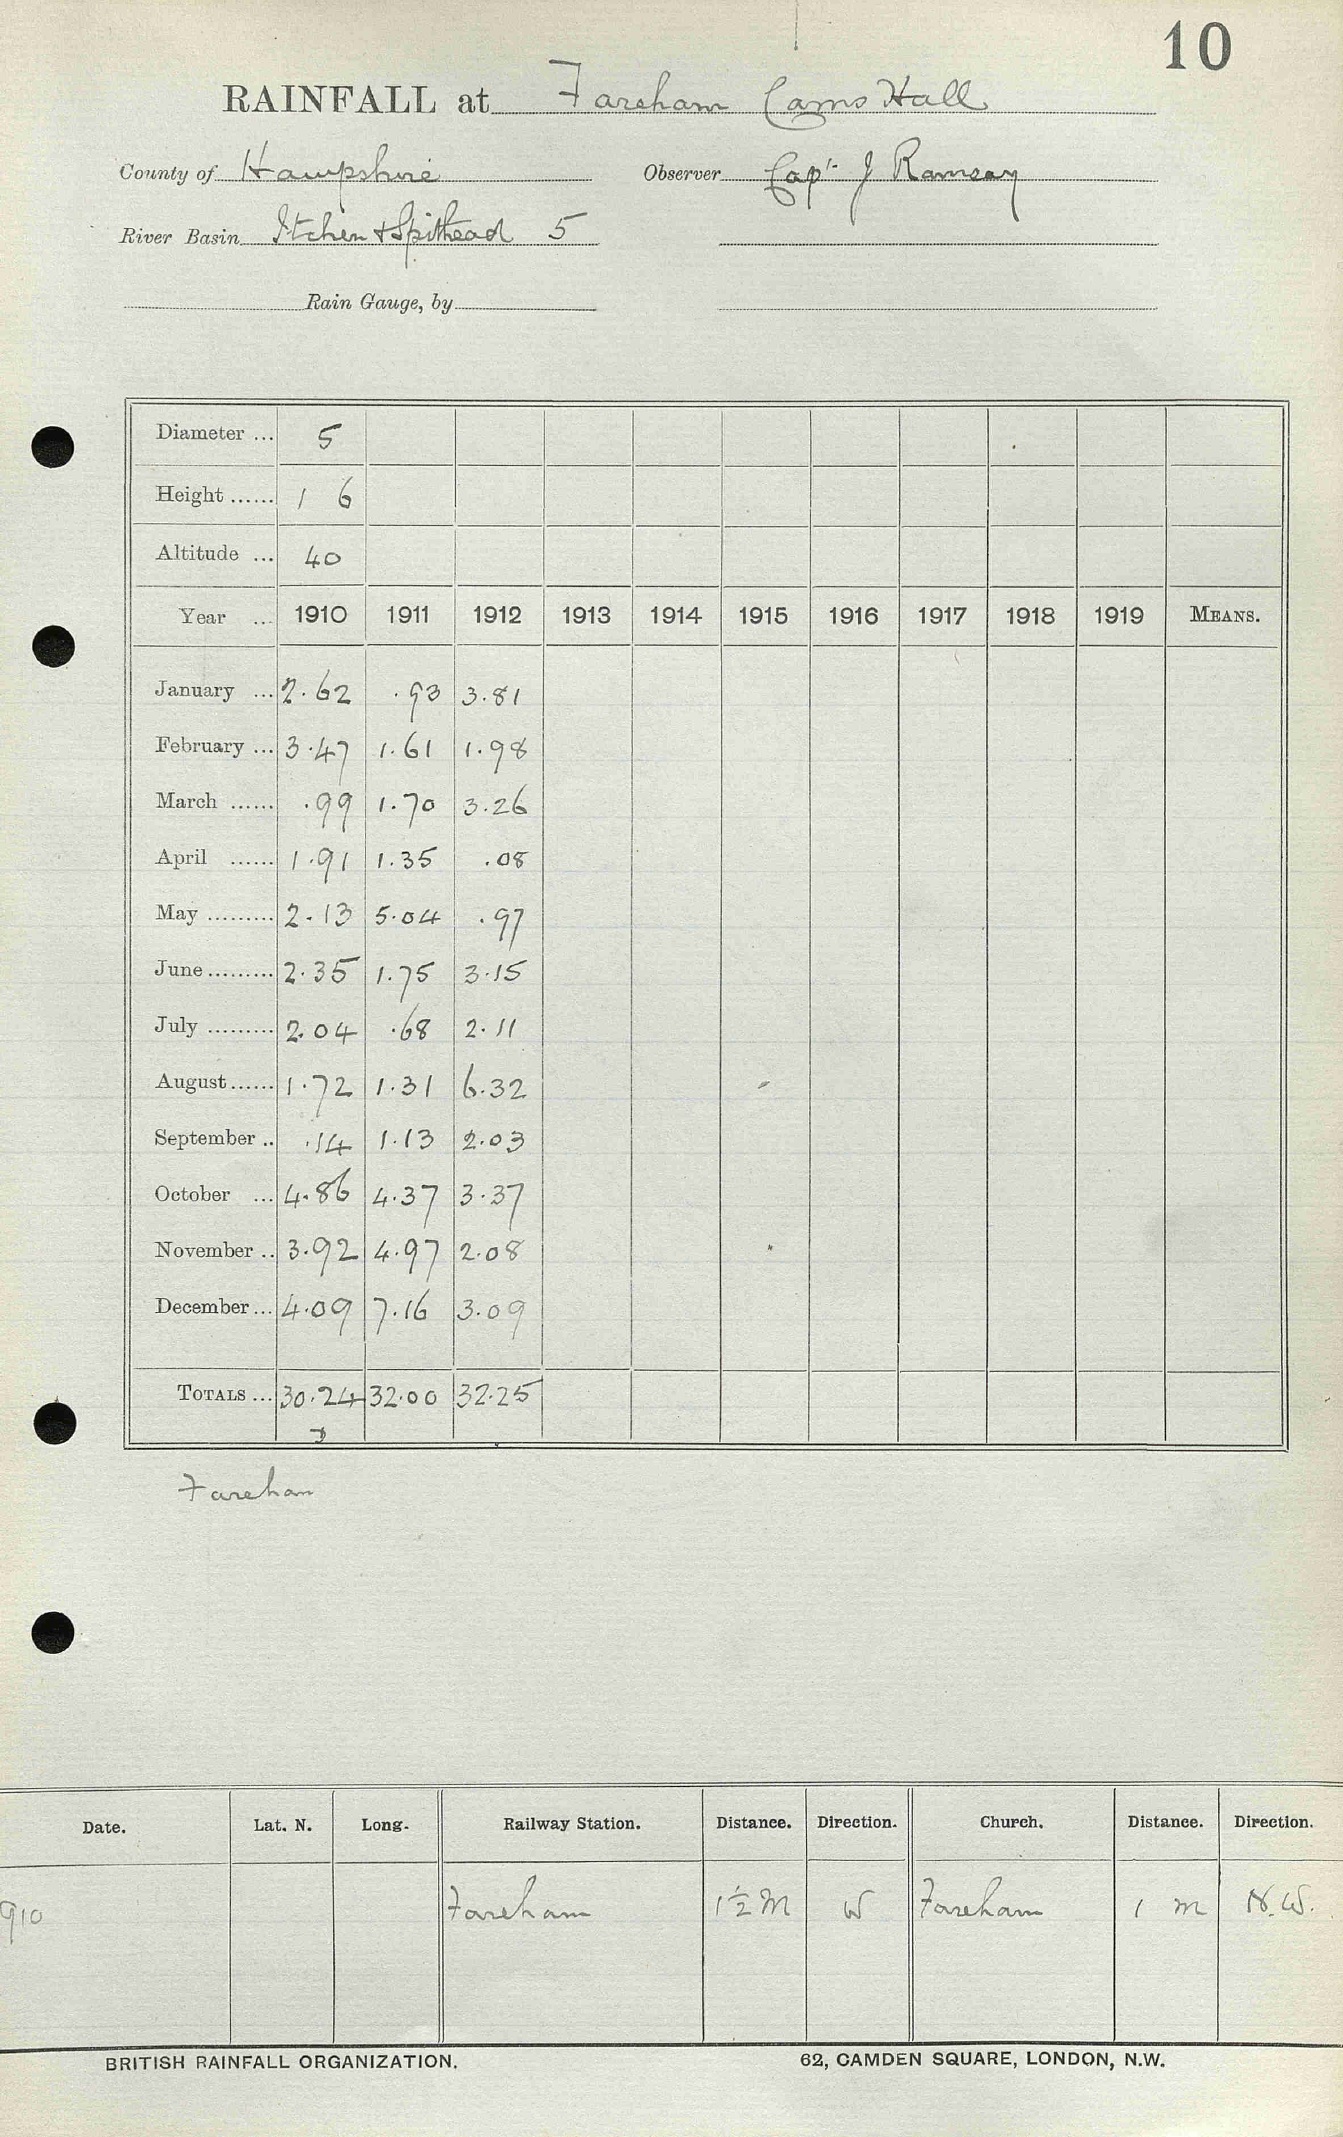 10
RAINFALL at Fareham Cams Hall
County of Hampshire Observer Capt J Ramsay
River Basin Itchen & Spithead 5
Rain Gauge, by
Diameter ... 5
Height ...... 1 6
Altitude ... 40
Year ... 1910 1911 1912 1913 1914 1915 1916 1917 1918 1919 MEANS.
January ... 2.62 .93 3.81
February ... 3.47 1.61 1.98
March ...... .99 1.70 3.26
April ...... 1.91 1.35 .08
May ......... 2.13 5.04 .97
June ......... 2.35 1.75 3.15
July ......... 2.04 .68 2.11
August ...... 1.72 1.31 6.32
September .. .14 1.13 2.03
October ... 4.86 4.37 3.37
November .. 3.92 4.97 2.08
December ... 4.09 7.16 3.09
TOTALS ... 30.24 32.00 32.25
Fareham
Date. Lat. N. Long. Railway Station. Distance. Direction. Church. Distance. Direction.
910 Fareham 1½ M W Fareham 1 m N.W.
BRITISH RAINFALL ORGANIZATION. 62, CAMDEN SQUARE, LONDON, N.W.